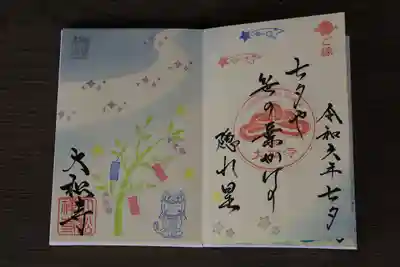 令和六年七夕
七夕や
笹の葉かげの
隠れ星
ご縁